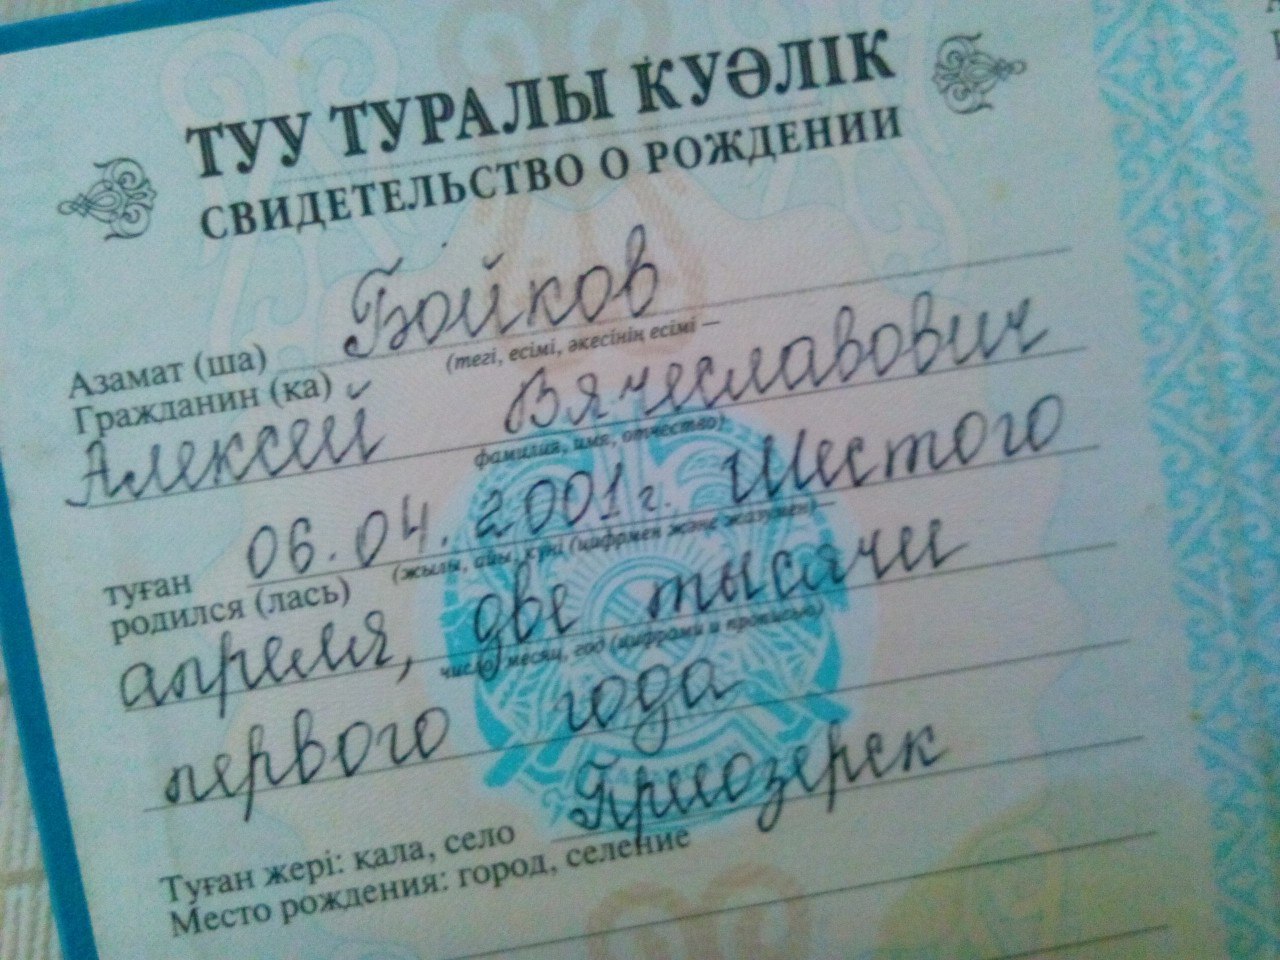 ТУУ ТУРАЛЫ КУӘЛІК
СВИДЕТЕЛЬСТВО О РОЖДЕНИИ
Азамат (ша) Бойков
Гражданин (ка)
(тегі, есімі, әкесінің есімі —
Алексей Вячеславович
фамилия, имя, отчество)
туған 06.04.2001г. Шестого
родился (лась)
(жылы, айы, күні (цифрмен және жазумен) —
апреля, две тысячи
число, месяц, год (цифрами и прописью)
первого года
Туған жері: қала, село Приозерск
Место рождения: город, селение